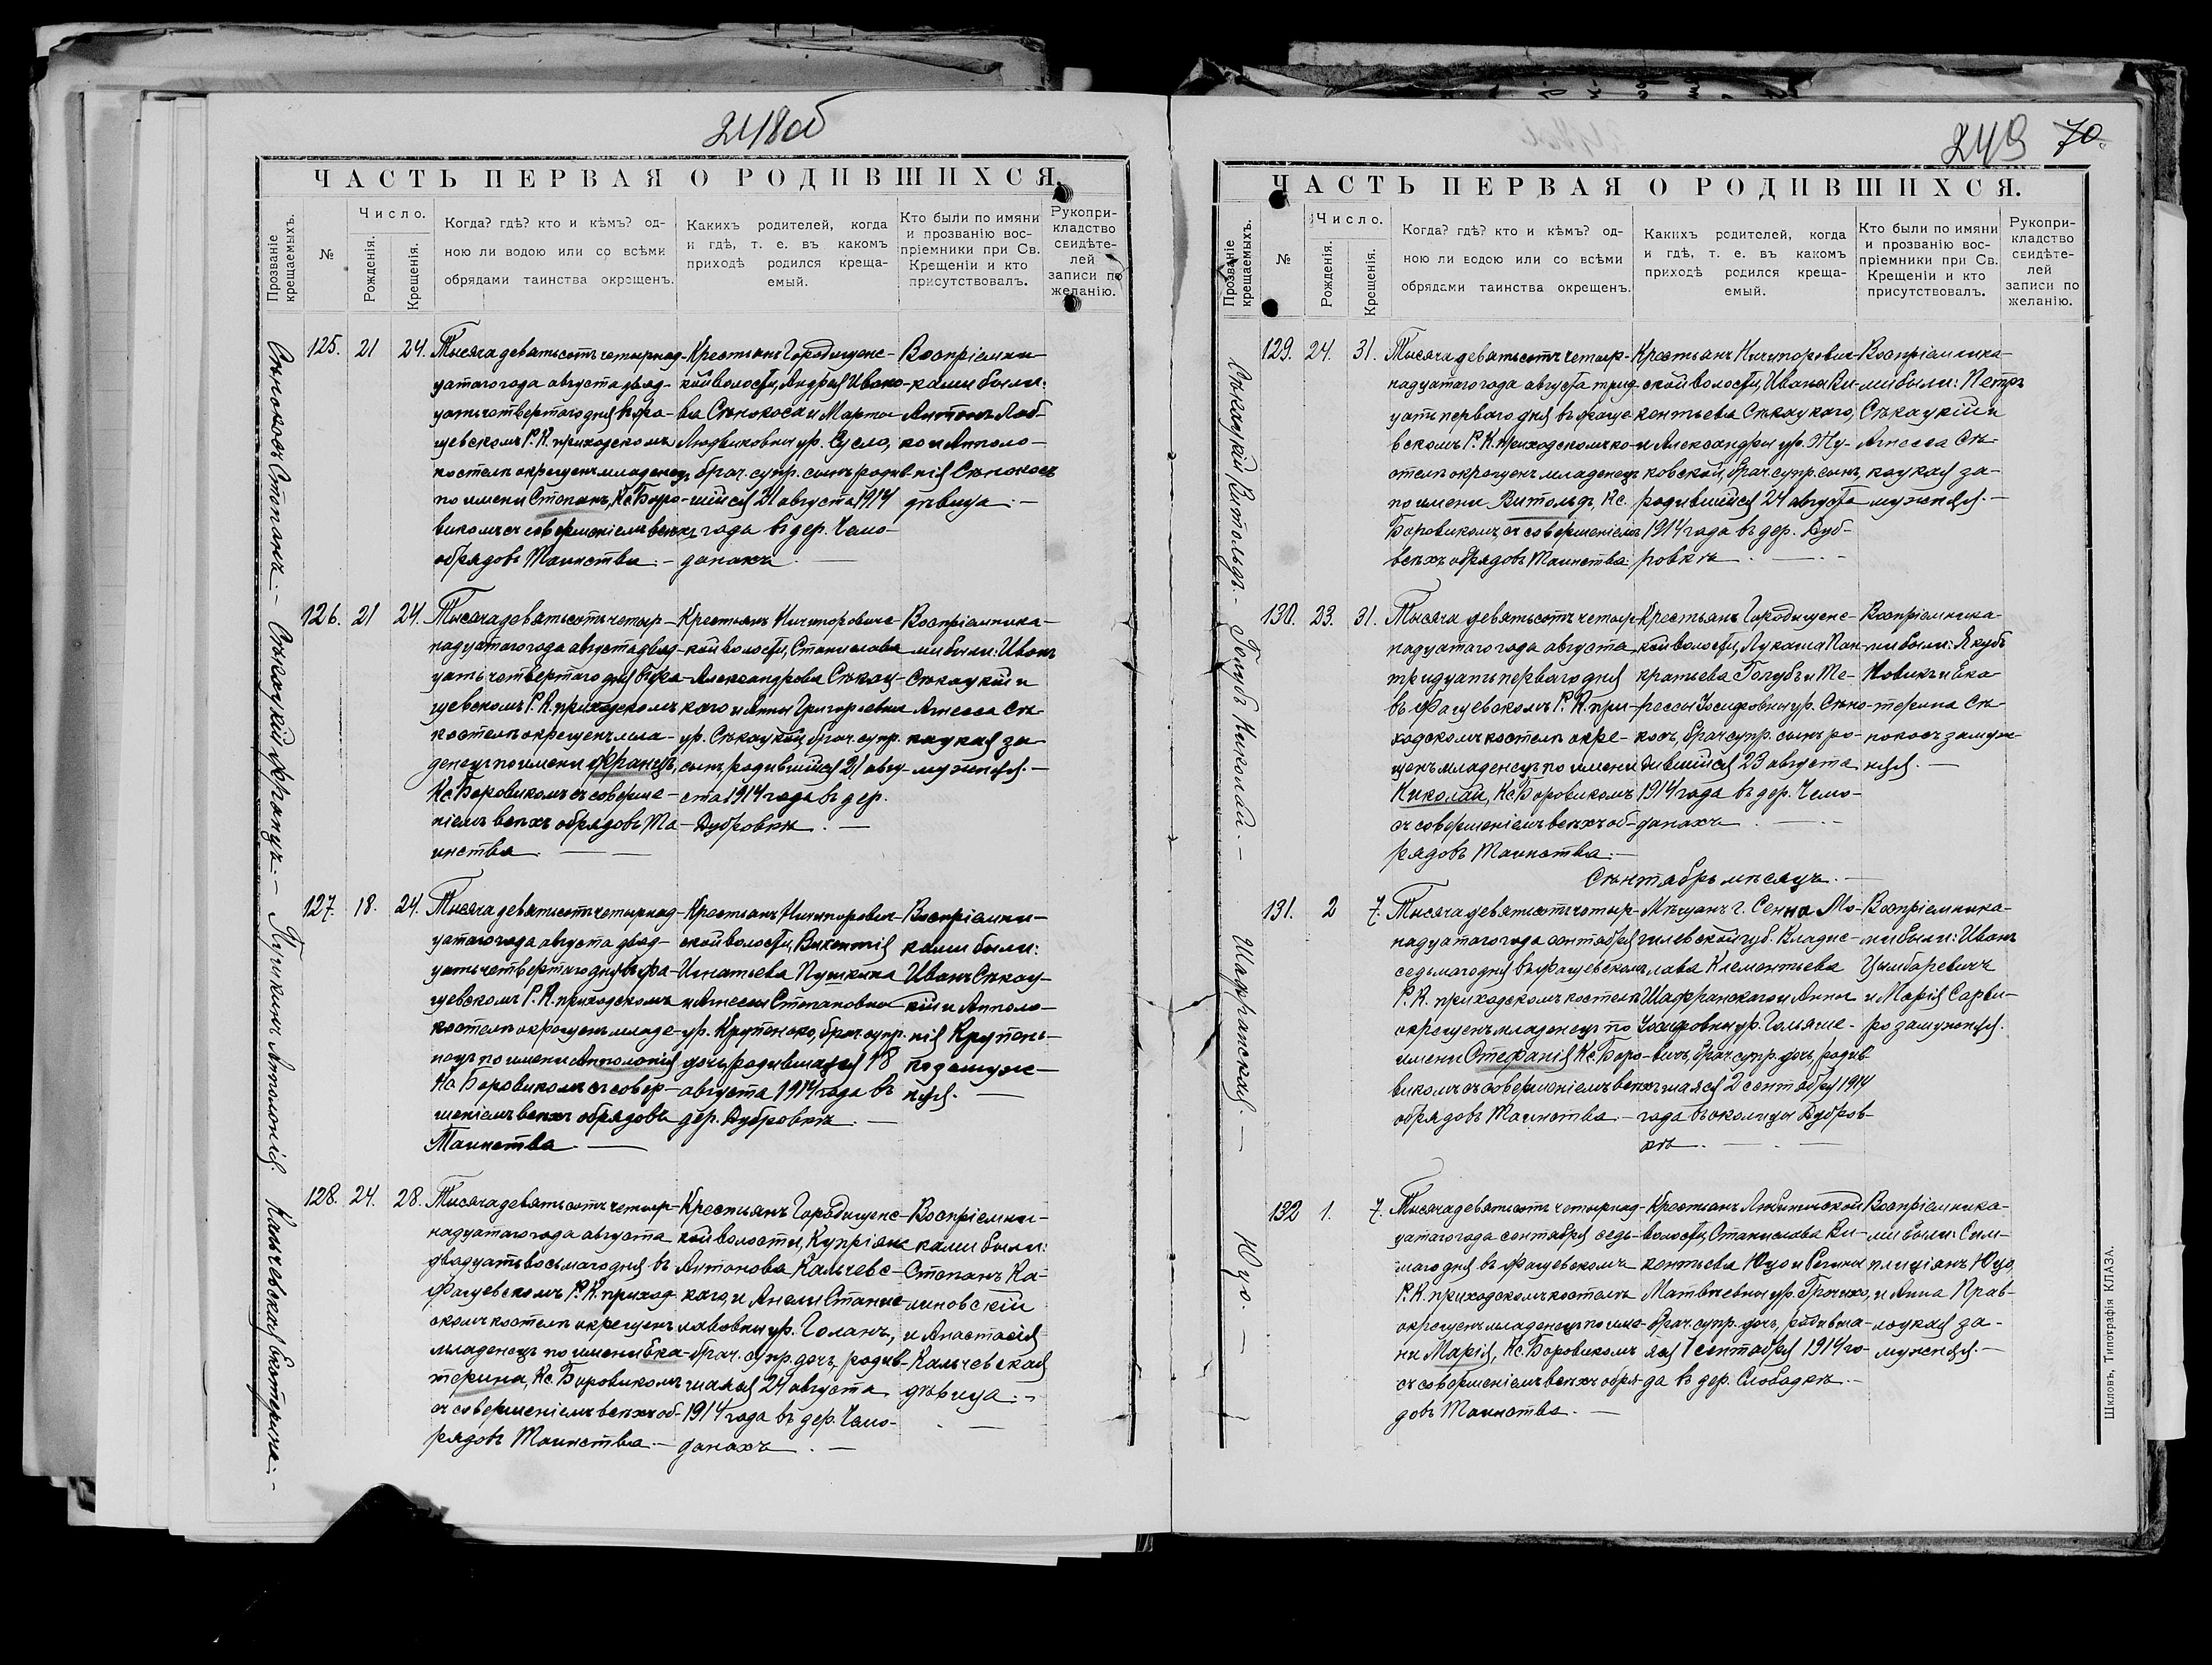 248об
ЧАСТЬ ПЕРВАЯ О РОДИВШИХСЯ.
Прозваніе крещаемыхъ.
№
Число.
Рожденія.
Крещенія.
Когда? гдѣ? кто и кѣмъ? од-
ною ли водою или со всѣми
обрядами таинства окрещенъ.
Какихъ родителей, когда
и гдѣ, т. е. въ какомъ
приходѣ родился креща-
емый.
Кто были по имяни
и прозванію вос-
пріемники при Св.
Крещеніи и кто
присутствовалъ.
Рукопри-
кладство
свидѣте-
лей
записи по
желанію.
Сѣнокосъ Степанъ.-
125. 21 24.
Тысяча девятьсотъ четырнад-
цатаго года августа двад-
цать четвертаго дня въ Фа-
щевскомъ Р. К. приходскомъ
костелѣ окрещенъ младенецъ
по имени Степанъ, Кс. Боро-
викомъ съ совершеніемъ всѣхъ
обрядовъ Таинства.-
Крестьянъ Городищенс-
кой волости, Андрея Ивано-
ва Сѣнокоса и Марты
Людвиковны ур. Сусло,
брач. супр. сынъ, родив-
шійся 21 августа 1914
года въ дер. Чемо-
данахъ.
Воспріемни-
ками были:
Антонъ Лаб-
ко и Аполо-
нія Сѣнокосъ
дѣвица.-
Сѣкацкій Францъ.-
126. 21 24.
Тысяча девятьсотъ четыр-
надцатаго года августа двад-
цать четвертаго дня въ Фа-
щевскомъ Р. К. приходскомъ
костелѣ окрещенъ мла-
денецъ по имени Францъ,
Кс. Боровикомъ съ соверше-
ніемъ всѣхъ обрядовъ Та-
инства.
Крестьянъ Ничипоровичс-
кой волости, Станислава
Александрова Сѣкац-
каго и Анны Григорьевны
ур. Сѣкацкой, брач. супр.
сынъ, родившійся 21 авгу-
ста 1914 года въ дер.
Дубровкѣ.
Воспріемника-
ми были: Иванъ
Сѣкацкій и
Агнесса Сѣ-
кацкая за-
мужняя.-
Пушкинъ Апполонія.
127. 18. 24.
Тысяча девятьсотъ четырнад-
цатаго года августа двад-
цать четвертаго дня въ Фа-
щевскомъ Р. К. приходскомъ
костелѣ окрещенъ младе-
нецъ по имени Апполонія
Кс. Боровикомъ съ совер-
шеніемъ всѣхъ обрядовъ
Таинства.
Крестьянъ Ничипорович-
ской волости, Викентія
Игнатьева Пушкина
и Агнесіи Степановны
ур. Крутенько, брач. супр.
дочь, родившаяся 18
августа 1914 года въ
дер. Дубровкѣ.
Воспріемни-
ками были:
Иванъ Сѣкац-
кій и Апполо-
нія Крутень-
ко замуж-
няя.
Кальчевская Екатерина.-
128. 24. 28.
Тысяча девятьсотъ четыр-
надцатаго года августа
двадцать восьмаго дня въ
Фащевскомъ Р. К. приход-
скомъ костелѣ окрещенъ
младенецъ по имени Ека-
терина, Кс. Боровикомъ
съ совершеніемъ всѣхъ об-
рядовъ Таинства.-
Крестьянъ Городищенс-
кой волости, Купріяна
Антонова Кальчевс-
каго, и Анели Станис-
лавовны ур. Голанъ,
брач. супр. дочь, родив-
шаяся 24 августа
1914 года въ дер. Чемо-
данахъ.
Воспріемни-
ками были:
Степанъ Ка-
линовскій
и Анастасія
Кальчевская
дѣвица.-
249 70.
ЧАСТЬ ПЕРВАЯ О РОДИВШИХСЯ.
Прозваніе крещаемыхъ.
№
Число.
Рожденія.
Крещенія.
Когда? гдѣ? кто и кѣмъ? од-
ною ли водою или со всѣми
обрядами таинства окрещенъ.
Какихъ родителей, когда
и гдѣ, т. е. въ какомъ
приходѣ родился креща-
емый.
Кто были по имяни
и прозванію вос-
пріемники при Св.
Крещеніи и кто
присутствовалъ.
Рукопри-
кладство
свидѣте-
лей
записи по
желанію.
Сѣкацкій Витольдъ.-
129. 24. 31.
Тысяча девятьсотъ четыр-
надцатаго года августа трид-
цать перваго дня въ Фаще-
вскомъ Р. К. приходскомъ ко-
стелѣ окрещенъ младенецъ
по имени Витольдъ, Кс.
Боровикомъ, съ совершеніемъ
всѣхъ обрядовъ Таинства.
Крестьянъ Ничипорович-
ской волости, Ивана Ви-
кентьева Сѣкацкаго,
и Александры ур. Жу-
ковской, брач. супр. сынъ,
родившійся 24 августа
1914 года въ дер. Дуб-
ровкѣ.
Воспріемника-
ми были: Петръ
Сѣкацкій и
Агнесса Сѣ-
кацкая за-
мужняя.-
Голубъ Николай.-
130. 23. 31.
Тысяча девятьсотъ четыр-
надцатаго года августа
тридцать перваго дня
въ Фащевскомъ Р. К. при-
ходскомъ костелѣ окре-
щенъ младенецъ по имени
Николай, Кс. Боровикомъ
съ совершеніемъ всѣхъ об-
рядовъ Таинства.-
Крестьянъ Городищенс-
кой волости, Лукаша Пан-
кратьева Голубъ и Те-
рессы Іосифовны ур. Сѣно-
косъ, брач. супр. сынъ ро-
дившійся 23 августа
1914 года въ дер. Чемо-
данахъ.
Воспріемника-
ми были: Якубъ
Новикъ и Ека-
терина Сѣ-
нокосъ замуж-
няя.-
Сѣнтябрь мѣсяцъ.
Шафранская.-
131. 2 7.
Тысяча девятьсотъ четыр-
надцатаго года сентября
седьмаго дня въ Фащевскомъ
Р. К. приходскомъ костелѣ
окрещенъ младенецъ по
имени Стефанія Кс. Боро-
викомъ съ совершеніемъ всѣхъ
обрядовъ Таинства.-
Мѣщанъ г. Сенна Мо-
гилевской губ. Владис-
лава Клементьева
Шафранскаго и Анны
Іосифовны ур. Гольяше-
вичъ, брач. супр. дочь, родив-
шаяся 2 сентября 1914
года въ околицы Дубров-
кѣ.
Воспріемника-
ми были: Иванъ
Цымбаревичъ
и Марія Сарви-
ро замужняя.
Юцо.-
132 1. 7.
Тысяча девятьсотъ четырнад-
цатаго года сентября седь-
маго дня въ Фащевскомъ
Р. К. приходскомъ костелѣ
окрещенъ младенецъ по име-
ни Марія, Кс. Боровикомъ
съ совершеніемъ всѣхъ обря-
довъ Таинства.-
Крестьянъ
волости, Станислава Ви-
кентьева Юцо и Регины
Матвѣевны ур. Гречихо,
брач. супр. дочь, родивша-
яся 1 сентября 1914 го-
да въ дер. Слободкѣ.-
Воспріемника-
ми были: Сим-
плиціянъ Юцо,
и Анна Прав-
лоцкая за-
мужняя.-
Шкловъ, Типографія КЛАЗА.